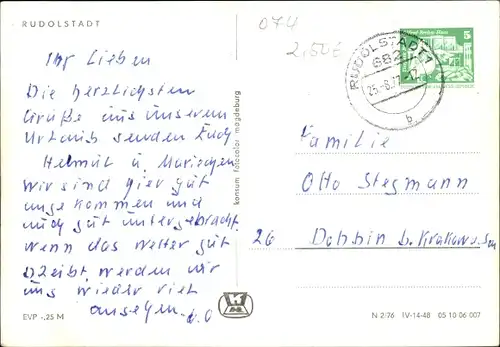 RUDOLSTADT
074
2,50€
Ihr Lieben
Die herzlichsten
Grüße aus unserem
Urlaub senden Euch
Helmut u. Mariechen
wir sind hier gut
angekommen und
auch gut untergebracht
wenn das Wetter gut
bleibt werden wir
uns wieder viel
ansehen.
EVP -,25 M
konsum fotocolor magdeburg
RUDOLSTADT 1
682
25.-8.77.-17
b
5
Familie
Otto Stegmann
26 Dobbin b. Krakow
N 2/76 IV-14-48 05 10 06 007